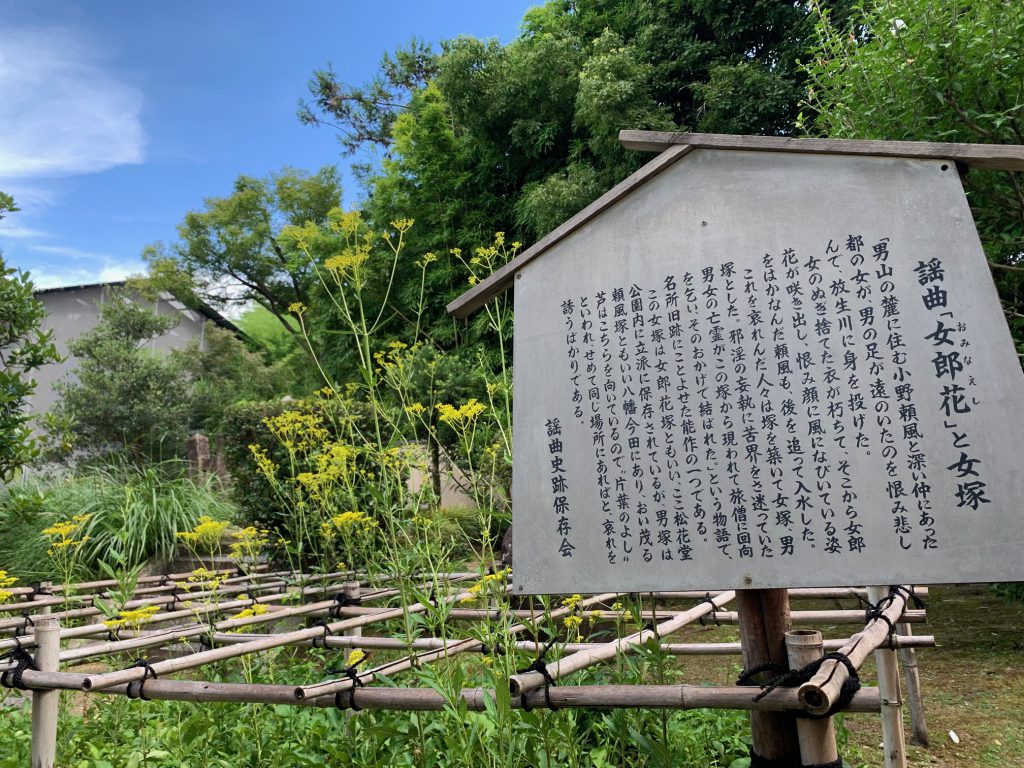 謡曲「女郎花」と女塚
おみなえし
「男山の麓に住む小野頼風と深い仲にあった
都の女が、男の足が遠のいたのを恨み悲し
んで、放生川に身を投げた。
女のぬぎ捨てた衣が朽ちて、そこから女郎
花が咲き出し、恨み顔に風になびいている姿
をはかなんだ頼風も、後を追って入水した。
これを哀れんだ人々は塚を築いて女塚、男
塚とした。邪淫の妄執に苦界をさ迷っていた
男女の亡霊がこの塚から現われて旅僧に回向
を乞い、そのおかげで結ばれた。」という物語で、
名所旧跡にことよせた能作の一つである。
この女塚は女郎花塚ともいい、ここ松花堂
公園内に立派に保存されているが、男塚は
頼風塚ともいい八幡今田にあり、おい茂る
芦はこちらを向いているので、"片葉のよし"
といわれ、せめて同じ場所にあればと、哀れを
誘うばかりである。
謡曲史跡保存会